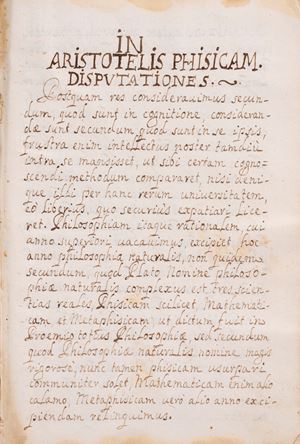 IN
ARISTOTELIS PHISICAM.
DISPVTATIONES.
Postquam res consideravimus secun-
dum, quod sunt in cognitione, consideran-
dæ sunt secundum quod sunt in se ipsis,
frustra enim intellectus noster tamdiu
intra se mansisset, ut sibi certam cogno-
scendi methodum compararet, nisi deni-
que illi per hanc rerum universitatem,
eò liberius, quo securius expatiari lice-
ret. Philosophiam itaque rationalem, cui
anno superiori vacavimus, excipiet hoc
anno philosophia naturalis, non quidem
secundum, quod Plato, Nomine philoso-
phiæ naturalis complexus est tres scien-
tias reales, Phisicam scilicet, Mathemati-
cam et Metaphisicam, ut dictum fuit in
Proemio totius Philosophiæ, sed secundum
quod Philosophiæ naturalis nomine magis
rigorose, nunc tamen phisicam usurpari
communiter solet, Mathematicam enim alio
calamo, Metaphisicam vero alio anno exci-
piendam relinquimus.